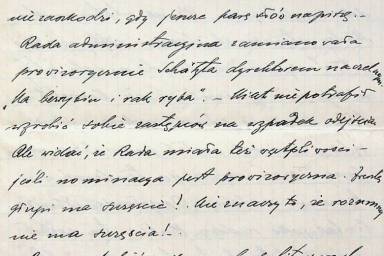 nie zaszkodzi, gdy jeszcze parę słów napiszę. –
Rada administracyjna zamianowała
provizorycznie Schätzla dyrektorem naczelnym
„Na bezrybiu i rak ryba". – Miał nie potrafił
wyrobić sobie zastępców na wypadek odejścia.
Ale widać, że Rada miała też wątpliwości –
jeśli nominacja jest provizoryczna.
głupi ma szczęście! Nie znaczy to, że rozumny
nie ma szczęścia!